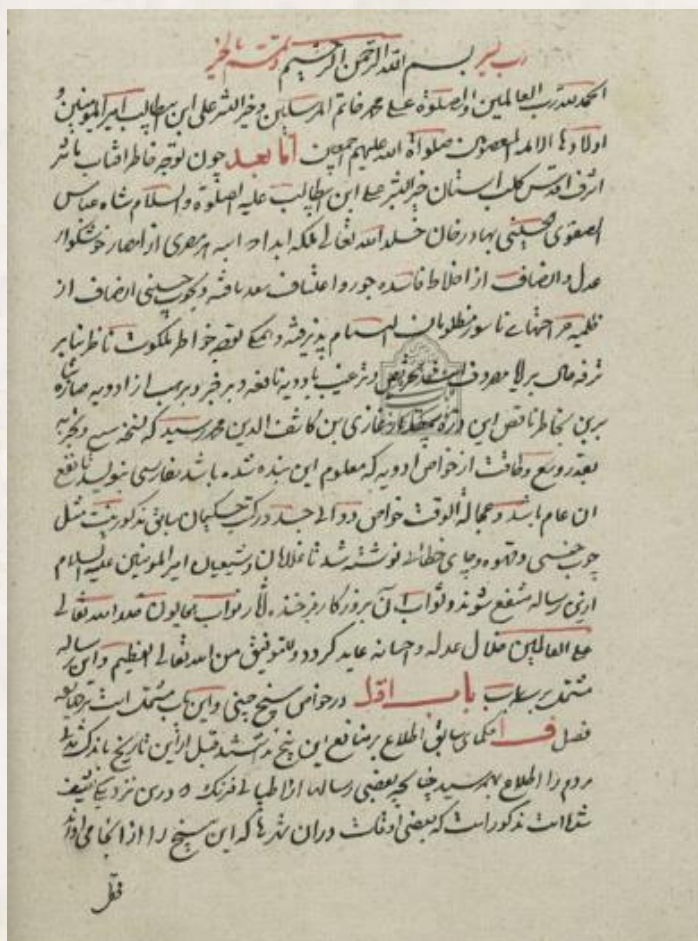 رب یسر بسم الله الرحمن الرحیم و تمم بالخیر
الحمد لله رب العالمین والصلوة علی محمد خاتم المرسلین و خیر البشر علی ابن ابیطالب امیر المومنین و
اولادها الائمة المعصومین صلواة الله علیهم اجمعین اما بعد چون توجه خاطر افتاب تاثر
اشرف اقدس کلب استان خیر البشر علی ابن ابیطالب علیه الصلوة والسلام شاه عباس
الصفوی الحسینی بهادر خان خلد الله تعالی ملکه ابدا هر مصری از امصار خوشگوار
عدل و انصاف از اخلاط فاسده جور و اعتساف یافته و بچوب چینی انصاف از
جراحتهای ناسور مظلومان التیام پذیرفته و همگی توجه خواطر ملکوت ناظر بنابر
ترفه حال برایا مصروف است و ترغیب بادویه نافعه و از ادویه ضاره
برین بخاطر ناقص این ذره بیمقدار قاضی بن کاشف الدین محمد رسید که نسخه
بقدر وسع و طاقت از خواص ادویه که معلوم این بنده شده باشد بفارسی بنویسد تا نفع
ان عام باشد و عجالة الوقت خواص دوائی چند در کتب حکیمان سابق مذکور نیست مثل
چوب چینی و قهوه و چای خطائی نوشته شد تا غلامان و شیعیان امیر المومنین علیه السلام
ازین رساله منتفع شوند و ثواب آن بروزکار نواب همایون خلد الله تعالی
علی العالمین ظلال عدله و احسانه عاید کردد و التوفیق من الله تعالی العظیم و این رساله
مشتمل بر سه باب باب اول در خواص بیخ چینی و این باب مشتمل است بر
فصل ا حکمای سابق اطلاع بر منافع این بیخ نداشتند قبل ازین تاریخ باندک
مردم را اطلاع بهمرسید چنانچه بعضی رسالها از اطبای فرنک که درین نزدیکی
شده است مذکور است که بعضی اوقات دران شهرها که این بیخ را از انجا می اورند